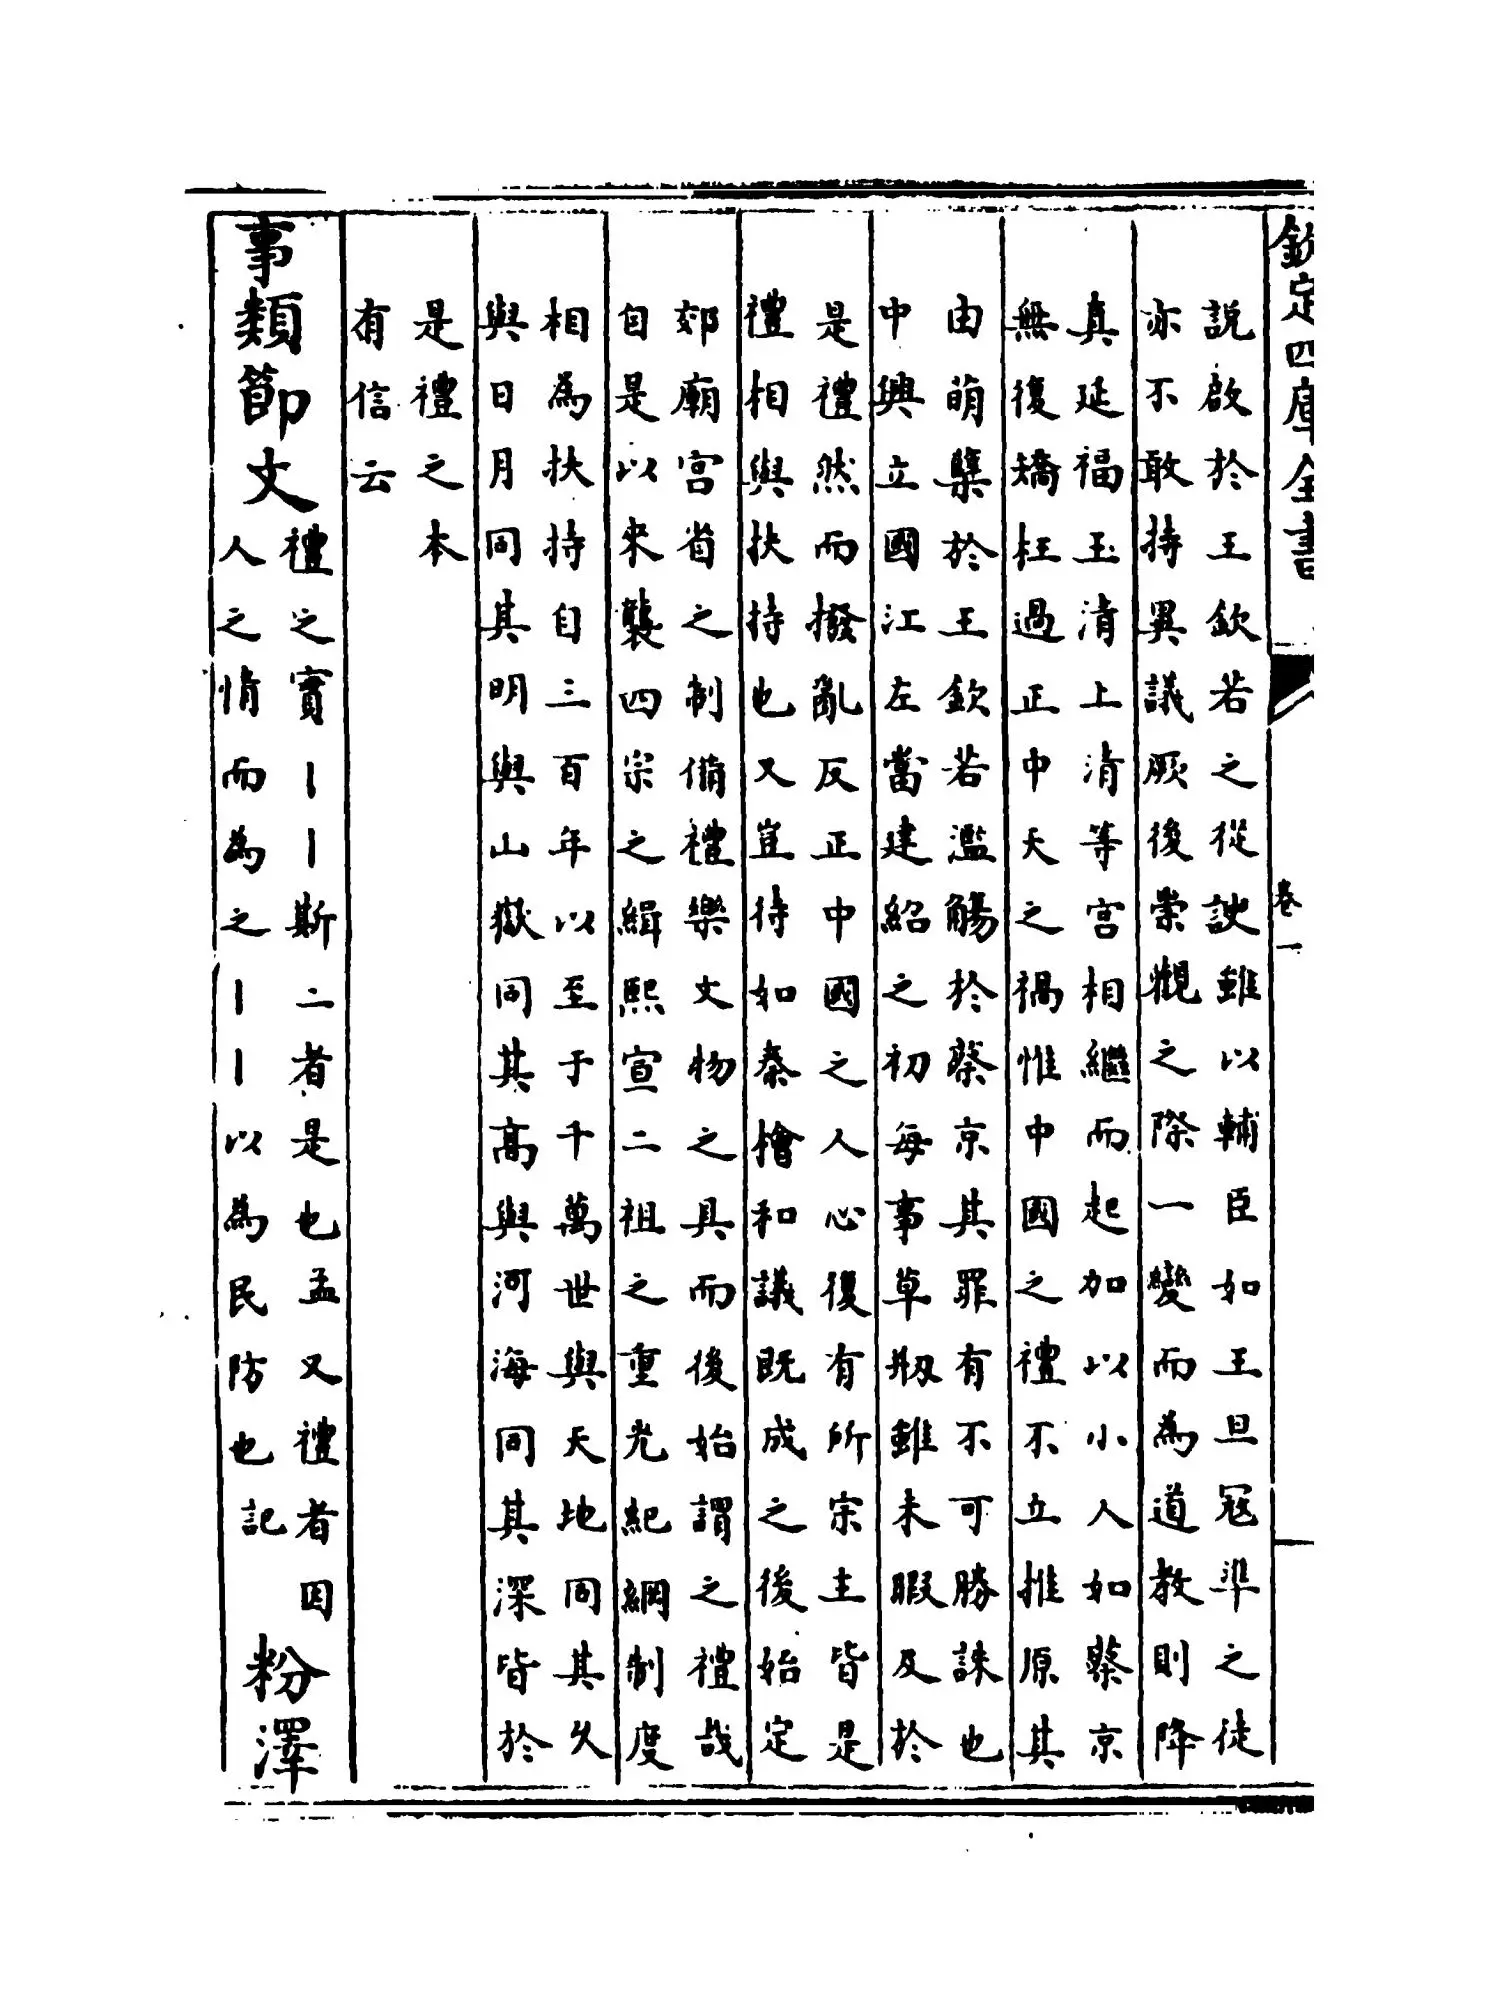 欽定四庫全書
卷一
說啟於王欽若之從諛雖以輔臣如王旦冦準之徒
亦不敢持異議厥後崇觀之際一變而為道教則降
真延福玉清上清等宮相繼而起加以小人如蔡京
無復矯枉過正中天之禍惟中國之禮不立推原其
由萌櫱於王欽若濫觴於蔡京其罪有不可勝誅也
中興立國江左當建紹之初每事草剏雖未暇及於
是禮然而撥亂反正中國之人心復有所宗主皆是
禮相與扶持也又豈待如秦檜和議既成之後始定
郊廟宮省之制備禮樂文物之具而後始謂之禮哉
自是以來襲四宗之緝熙宣二祖之重光紀綱制度
相為扶持自三百年以至于千萬世與天地同其久
與日月同其明與山嶽同其高與河海同其深皆於
是禮之本
有信云
事類節文
禮之實丨丨斯二者是也孟又禮者因
人之情而為之丨丨以為民防也記
粉澤